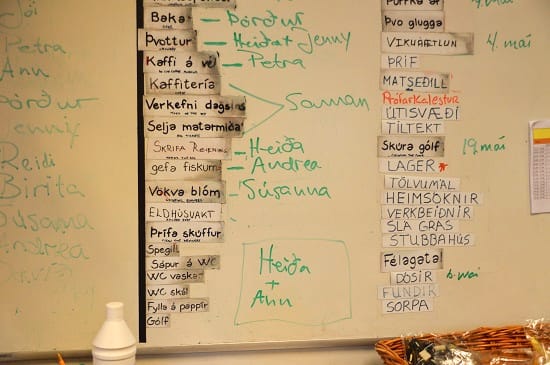 Jói
Petra
Ann
Þórður
Jenny
Reidi
Birita
Súsanna
Andrea
Baka – Þórður
Þvottur – Heiða + Jenny
Kaffi á vél – Petra
Kaffitería
Verkefni dagsins
Selja matarmiða
Saman
SKRIFA REIKNING – Heiða
gefa fiskum – Andrea
Vökva blóm – Súsanna
ELDHÚSVAKT –
Þrífa skúffur
Spegill
Sápur á WC
WC vaskar
WC skál
Fylla á pappír
Gólf
Heiða
+
Ann
Þurrka af
Þvo glugga
VIKUÁÆTLUN 4. maí
ÞRÍF
MATSEÐILL
Prófarkalestur
ÚTISVÆÐI
TILTEKT
Skúra gólf 19. maí
LAGER
TÖLVUMÁL
HEIMSÓKNIR
VERKBEIÐNIR
SLÁ GRAS
STUBBAHÚS
Félagatal
DÓSIR 6. maí
FUNDIR
SORPA